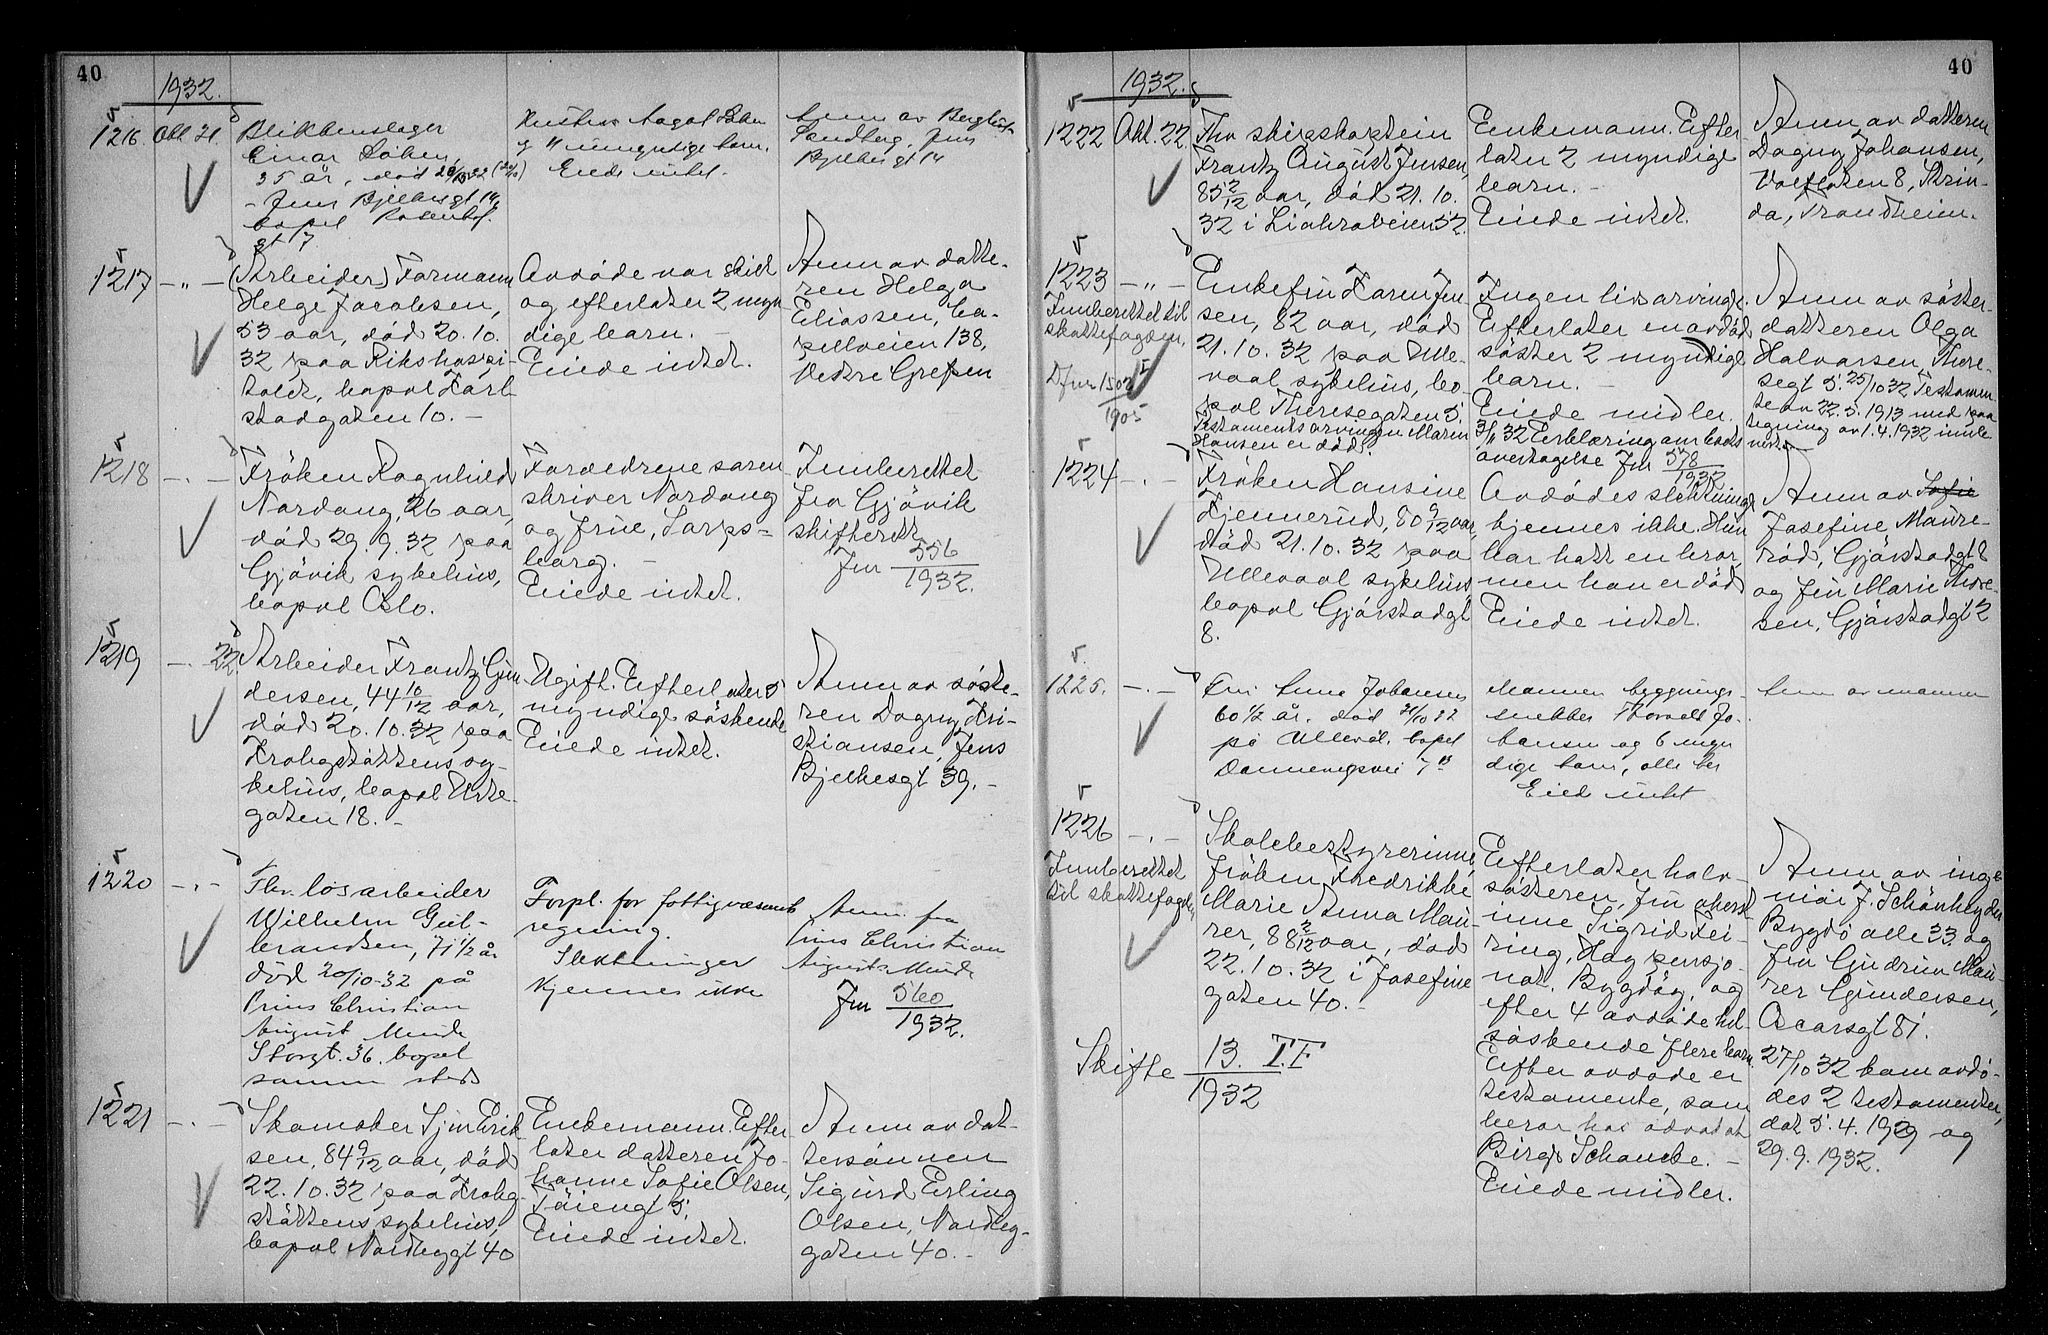 40
1932.
1216. Okt 21.
Blikkenslager
Einar
35 år, død
bopel
gt 7
Hustru Aagot
og umyndige barn.
Eiede intet.
Anm av
Sandberg, Jens
Bjelkesgt 14
1217 – " –
(Arbeider) Formann
Helge Jacobsen,
53 aar, död 20.10.
32 paa Rikshospi-
talet, bopel Karl
stadgaten 10. –
Avdöde var skilt
og efterlater 2 myn
dige barn. –
Eiede intet.
Anm av datte-
ren Helga
Eliassen, Ka-
pellveien 138,
Vestre Grefsen
1218 – . –
Fröken Ragnhild
Nordang, 26 aar,
död 29.9.32 paa
Gjövik sykehus,
bopel Oslo.
Forældrene soren
skriver Nordang
og frue, Sarps-
borg. –
Eiede intet.
Innberettet
fra Gjövik
skifterett
Jnr 556
1932.
1219 – . 22.
Arbeider Frantz Gun
dersen, 44 10/12 aar,
död 20.10.32 paa
Krohgstöttens sy-
kehus, bopel Urte-
gaten 18. –
Ugift. Efterlater 5
myndige söskende
Eiede intet.
Anm av söste-
ren Dagny Kri-
stiansen, Jens
Bjelkesgt 39. –
1220 – . –
Fhv. lösarbeider
Wilhelm Gul-
brandsen, 71 1/2 år
död 20/10-32 på
Prins Christian
August Minde
Storgt. 36. bopel
samme sted
Forpl. for fattigvæsenets
regning.
Slektninger
kjennes ikke
Anm. fra
Prins Christian
Augusts Minde
Jnr 560
1932.
1221 – . –
Skomaker Sjur Erik
sen, 84 9/12 aar, död
22.10.32 paa Krohg
stöttens sykehus,
bopel Nordbygt 40
Enkemann. Efter
later datteren Jo-
hanne Sofie Olsen,
Töiengt 5.
Eiede intet.
Anm av dat-
tersönnen
Sigurd Erling
Olsen, Nordby-
gaten 40. –
40
1932.
1222 Okt. 22.
Fhv skipskaptein
Frantz August Jensen,
85 2/12 aar, död 21.10.
32 i Liakroveien 52.
Enkemann. Efter
later 2 myndige
barn. –
Eiede intet.
Anm av datteren
Dagny Johansen,
8, Strin-
da, Trondheim.
1223 – " –
Innberettet til
skattefogden,
1905
Enkefru Karen Jen
sen, 82 aar, död
21.10.32 paa Ulle-
vaal sykehus, bo-
pel Theresegaten 5.
Testamentsarvingen Marin
Hansen er död.
Ingen livsarvinge.
Efterlater en avdöd
söster 2 myndige
barn. –
Eiede midler.
3/11 32 Erklæring om bo
overtagelse Jnr 578
1932
Anm av söster-
datteren Olga
Halvorsen, There-
segt 5. 25/10 32 Testamen
te av 22.5.1913 med paa
tegning av 1.4.1932 innle
vert.
1224 – . –
Fröken Hansine
Kjennerud, 80 9/12 aar,
död 21.10.32 paa
Ullevaal sykehus
bopel Gjörstadgt
8.
Avdödes slektninge
kjennes ikke. Hun
har hatt en bror,
men han er död
Eiede intet.
Anm av Sofie
Josefine Maure-
röd, Gjörstadgt 2
og fru Marie Thore-
sen, Gjörstadgt 2
1225. – . –
Fru Anna Johansen
60 1/2 år. död 21/10 32
på Ullevål. bopel
Dannevigsvei 7 B
Mannen bygnings-
snekker Thorvald Jo-
hansen og 6 myn
dige barn, alle her
Eied intet
Anm av mannen
1226 – . –
Innberettet
til skattefogden
Skolebestyrerinne
fröken Fredrikke
Marie Anna Mau-
rer, 88 2/12 aar, död
22.10.32 i Josefine
gaten 40. –
Efterlater halv-
sösteren, fru oberst
inne Sigrid Fei-
ring, Hag pensjo-
nat, Bygdöy, og
efter 4 avdöde hel-
söskende flere barn
Efter avdöde er
testamente, som
beror hos advokat
Birger Schancke. –
Eiede midler.
Anm av inge
niör J. Schönheyder
Bygdö alle 33. og
fru Gudrun Mau-
rer Gundersen,
Oscarsgt 81.
27/10 32 kom avdö-
des 2 testamenter,
dat 5.4.1929 og
29.9.1932.
Skifte 13. T.F
1932